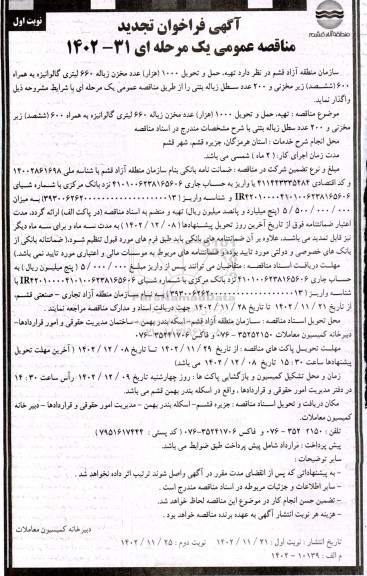 نوبت اول
آگهی فراخوان تجدید
مناقصه عمومی یک مرحله ای ۳۱- ۱۴۰۲
سازمان منطقه آزاد قشم
سازمان منطقه آزاد قشم در نظر دارد تهیه، حمل و تحویل ۱۰۰۰ (هزار) عدد مخزن زباله ۶۶۰ لیتری گالوانیزه به همراه
۶۰۰ (ششصد) زیر مخزنی و ۲۰۰ عدد سطل زباله بتنی را از طریق مناقصه عمومی یک مرحله ای با شرایط مشروحه ذیل
واگذار نماید.
موضوع مناقصه : تهیه، حمل و تحویل ۱۰۰۰ (هزار) عدد مخزن زباله ۶۶۰ لیتری گالوانیزه به همراه ۶۰۰ (ششصد) زیر
مخزنی و ۲۰۰ عدد سطل زباله بتنی با شرح مشخصات مندرج در اسناد مناقصه
محل انجام شرح خدمات : استان هرمزگان، جزیره قشم، شهر قشم
مدت زمان اجرای کار: ( ۲ ماه ) شمسی می باشد.
مبلغ و نوع تضمین شرکت در مناقصه : ضمانت نامه بانکی بنام سازمان منطقه آزاد قشم با شناسه ملی ۱۴۰۰۲۸۶۱۶۹۸
و کد اقتصادی ۴۱۱۴۴۳۳۳۵۴۸۴ یا واریز به حساب جاری ۴۱۰۱۰۰۶۲۳۸۱۶۵۶۰۶ نزد بانک مرکزی با شماره شبای
به میزان
۵/۵۰۰/۰۰۰/۰۰۰ (پنج میلیارد و پانصد میلیون ریال) تهیه و منضم به اسناد مناقصه (در پاکت الف) ارائه گردد. مدت
اعتبار ضمانتنامه فوق از تاریخ آخرین روز تحویل پیشنهادها ( ۰۸ / ۱۲ / ۱۴۰۲) به مدت سه ماه و برای سه ماه دیگر
نیز قابل تمدید می باشد. علاوه بر آن ضمانتنامه های بانکی باید طبق فرم های مورد قبول تنظیم شود.( ضمانتنامه بانکی از
بانک های خصوصی و دولتی مورد تایید بوده و ضمانتنامه های مربوط به موسسات مالی و اعتباری مورد تایید نمی باشد.)
مهلت دریافت اسناد مناقصه : متقاضیان می توانند پس از واریز مبلغ ۵/۰۰۰/۰۰۰ ( پنج میلیون ریال ) به
حساب جاری ۴۱۰۱۰۰۶۲۳۸۱۶۵۶۰۶ نزد بانک مرکزی با شماره شبای
به نام سازمان منطقه آزاد تجاری – صنعتی قشم،
از تاریخ ۲۱ / ۱۱ / ۱۴۰۲ تا تاریخ ۲۸ / ۱۱ / ۱۴۰۲ جهت دریافت اسناد و مدارک مناقصه مراجعه نمایند .
محل تحویل اسناد مناقصه : سازمان منطقه آزاد قشم- اسکه بندر بهمن – ساختمان مدیریت حقوقی و امور قراردادها-
دبیرخانه کمیسیون معاملات ۳۵۲۵۲۱۵۰-۰۷۶ و فاکس ۳۵۲۴۱۷۰۶-۰۷۶
مهلت تحویل پاکت های مناقصه : از تاریخ ۲۹ / ۱۱ / ۱۴۰۲ تا تاریخ ۰۸ / ۱۲ / ۱۴۰۲ ( آخرین مهلت تحویل
پیشنهادها ساعت ۳۰ : ۱۵ تاریخ ۰۸ / ۱۲ / ۱۴۰۲ می باشد)
زمان و محل تشکیل کمیسیون و بازگشایی پاکت ها : روز چهارشنبه تاریخ ۰۹ / ۱۲ / ۱۴۰۲ رأس ساعت ۳۰ : ۱۴
در دفتر مدیریت امور حقوقی و قراردادها ، واقع در اسکله بندر بهمن قشم می باشد.
مکان دریافت و تحویل اسناد مناقصه : جزیره قشم– اسکله بندر بهمن – مدیریت امور حقوقی و قراردادها – دبیر خانه
کمیسیون معاملات.
تلفن : ۲۱۵۰ ۳۵۲ - ۰۷۶ و فاکس ۳۵۲۴۱۷۰۶-۰۷۶ ( کد پستی : ۷۹۵۱۶۱۷۴۴۴ )
پیش پرداخت : قرارداد شامل پیش پرداخت طبق ضوابط می باشد.
سایر توضیحات :
– به پیشنهاداتی که پس از انقضای مدت مقرر در آگهی واصل شوند ترتیب اثر داده نخواهد شد .
– سایر اطلاعات و جزئیات مربوطه در اسناد مناقصه مندرج است .
– تضمین حسن انجام کار در موضوع این مناقصه لحاظ خواهد شد.
– هزینه هر نوبت انتشار آگهی به عهده برنده مناقصه خواهد بود .
دبیرخانه کمیسیون معاملات
تاریخ انتشار : نوبت اول : ۲۱ / ۱۱ / ۱۴۰۲ نوبت دوم : ۲۵ / ۱۱ / ۱۴۰۲
م الف : ۱۰۱۳۹ – ۱۴۰۲